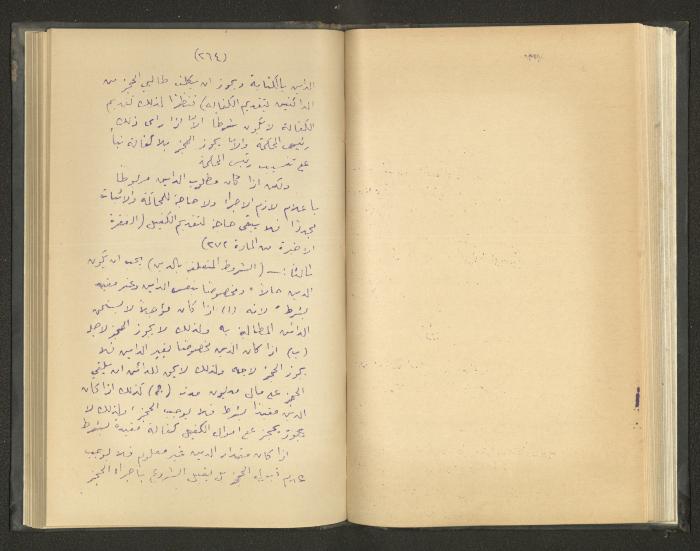 (٢٦٤)
الداين بالكتابة ويجوز ان يكلف طالبي الحجز من
الدائنين لتقديم الكفاله) فنظرًا لذلك تقديم
الكفالة لا تكون شرطًا الا اذا رأى ذلك
رئيس المحكمة والا يجوز الحجز بلا كفالة بناءً
على تنسيب رئيس المحكمة
ولكن اذا كان مطلوب الداين مربوطًا
باعلام لازم الاجرا ولا حاجة للمحاكمة والاثبات
مجددًا فلا يبقى حاجة لتقديم الكفيل (الفقرة
الاخيرة من المادة ٢٧٢)
ثالثًا :ــ (الشروط المتعلقه بالدين) يجب ان يكون
الدين حالاً ومخصوصًا بنفس الداين وغير مقيد
بشرط لانه (ا) اذا كان مؤجلاً لا يستحق
الدائن المطالبة به ولذلك لا يجوز الحجز لاجله
(ب) اذا كان الدين مخصوصًا بغير الداين فلا
يجوز الحجز لاجله ولذلك لا يمكن للدائن ان يلقي
الحجز على مال مديون مدينه (ج) كذلك اذا كان
الدين مقيدًا بشرط فلا يوجب الحجز ولذلك لا
يجوز الحجز على اموال الكفيل كفالة مقيدة بشرط
اذا كان مقدار الدين غير معلوم فلا يوجب
عدم قبول الحجز بل يقبل الشروع باجراء الحجز